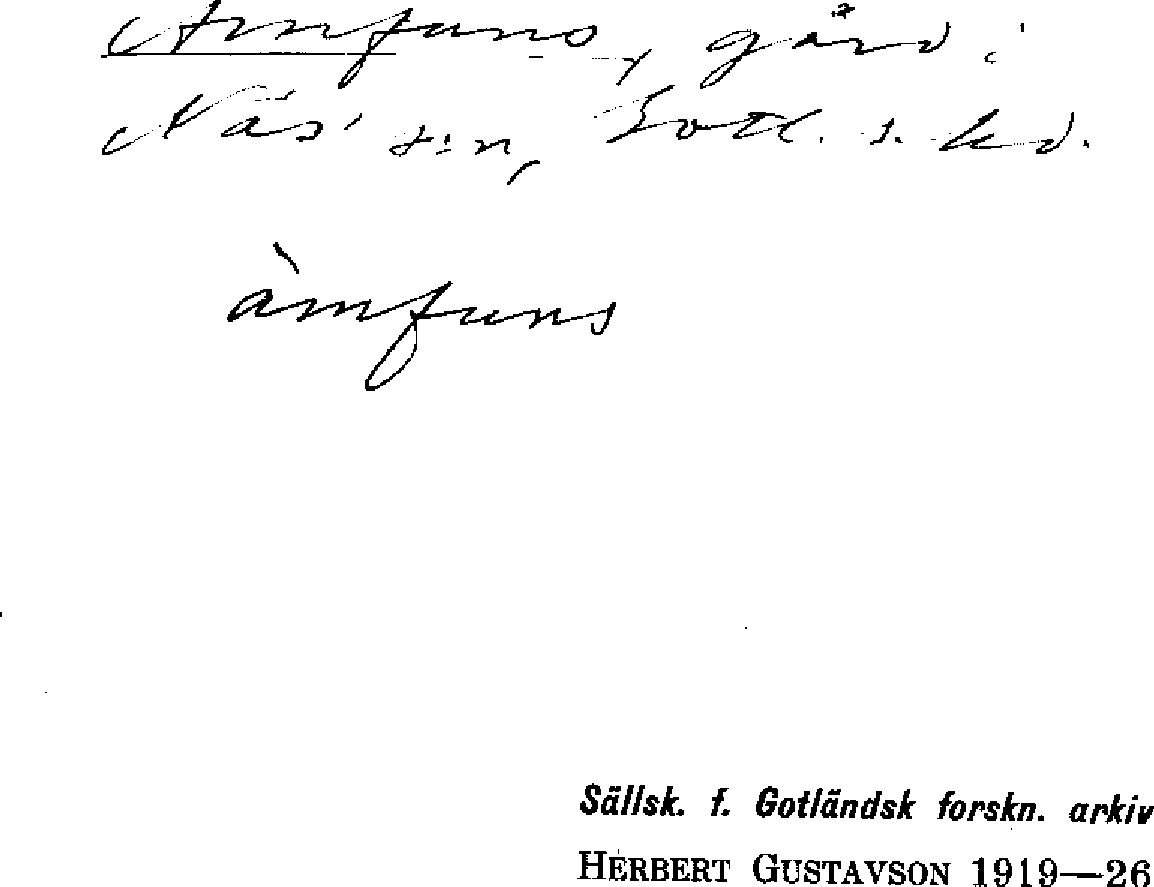 Amfuns, gård i
Näs' s:n, Gotl. s. hd.
àmfuns
Sällsk. f. Gotländsk forskn. arkiv
HERBERT GUSTAVSON 1919—26